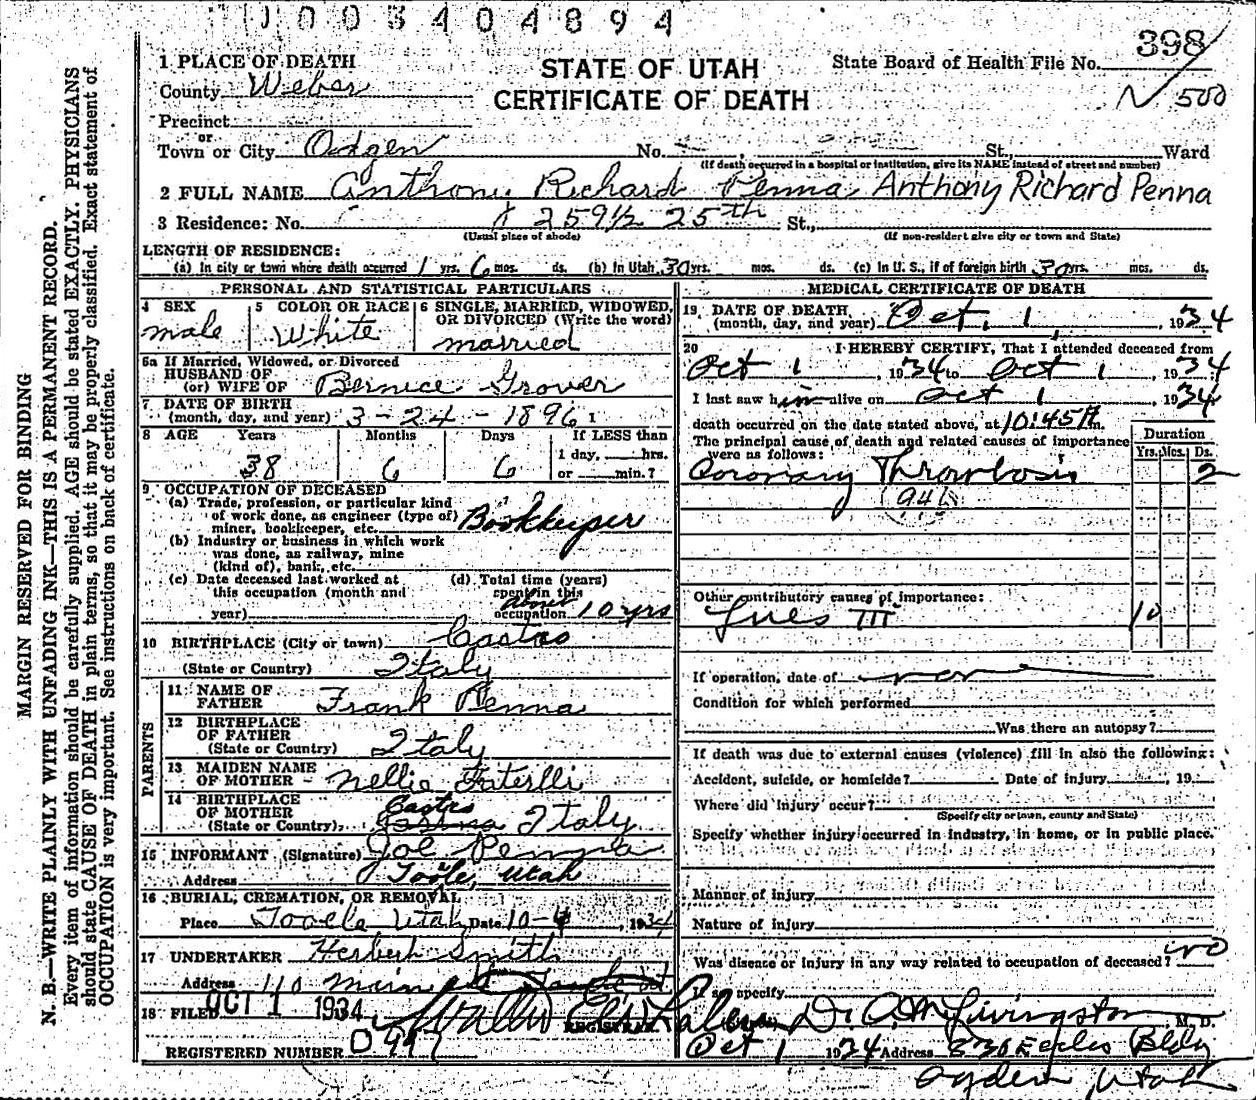 1003404894
398
State Board of Health File No.
N 500
STATE OF UTAH
CERTIFICATE OF DEATH
1 PLACE OF DEATH
County Weber
Precinct
or
Town or City Ogden No. St., Ward
(If death occurred in a hospital or institution, give its NAME instead of street and number)
2 FULL NAME Anthony Richard Penna Anthony Richard Penna
3 Residence: No. 259½ 25th St.,
(Usual place of abode) (If non-resident give city or town and State)
LENGTH OF RESIDENCE:
(a) In city or town where death occurred 1 yrs. 6 mos. ds. (b) In Utah 30 yrs. mos. ds. (c) In U. S., if of foreign birth 30 yrs. mos. ds.
PERSONAL AND STATISTICAL PARTICULARS
4 SEX 5 COLOR OR RACE 6 SINGLE, MARRIED, WIDOWED,
OR DIVORCED (Write the word)
male White married
6a If Married, Widowed, or Divorced
HUSBAND OF
(or) WIFE OF Bernice Grover
7 DATE OF BIRTH
(month, day, and year) 3-24-1896
8 AGE Years Months Days If LESS than
38 6 6 1 day, hrs.
or min.?
9 OCCUPATION OF DECEASED
(a) Trade, profession, or particular kind
of work done, as engineer (type of)
miner, bookkeeper, etc. Bookkeeper
(b) Industry or business in which work
was done, as railway, mine
(kind of), bank, etc.
(c) Date deceased last worked at (d) Total time (years)
this occupation (month and spent in this
year) occupation about 10 yrs
10 BIRTHPLACE (City or town) Castro
(State or Country) Italy
PARENTS
11 NAME OF
FATHER Frank Penna
12 BIRTHPLACE
OF FATHER
(State or Country) Italy
13 MAIDEN NAME
OF MOTHER Nellie Faterlli
14 BIRTHPLACE
OF MOTHER Castro
(State or Country) Italy
15 INFORMANT (Signature) Joe Penna
Address Tooele, Utah
16 BURIAL, CREMATION, OR REMOVAL
Place Tooele Utah Date 10-4, 1934
17 UNDERTAKER Herbert Smith
Address 110 Main st
18 FILED OCT 1 1934
REGISTRAR
REGISTERED NUMBER D 997
MEDICAL CERTIFICATE OF DEATH
19 DATE OF DEATH
(month, day, and year) Oct. 1, 1934
20 I HEREBY CERTIFY, That I attended deceased from
Oct 1, 1934 to Oct 1, 1934
I last saw him alive on Oct 1, 1934
death occurred on the date stated above, at 10:45 A m.
The principal cause of death and related causes of importance
were as follows:
Duration
Yrs. Mos. Ds.
Coronary Thrombosis 2
94b
Other contributory causes of importance:
Lues III 10
If operation, date of
Condition for which performed
Was there an autopsy?
If death was due to external causes (violence) fill in also the following:
Accident, suicide, or homicide? Date of injury , 19
Where did injury occur?
(Specify city or town, county and State)
Specify whether injury occurred in industry, in home, or in public place.
Manner of injury
Nature of injury
Was disease or injury in any way related to occupation of deceased? no
If so specify
Dr. A. M. Livingston M. D.
Oct 1 1934 Address 830 Eccles Bldg
Ogden, Utah
MARGIN RESERVED FOR BINDING
N. B.—WRITE PLAINLY WITH UNFADING INK—THIS IS A PERMANENT RECORD.
Every item of information should be carefully supplied. AGE should be stated EXACTLY. PHYSICIANS
should state CAUSE OF DEATH in plain terms, so that it may be properly classified. Exact statement of
OCCUPATION is very important. See instructions on back of certificate.